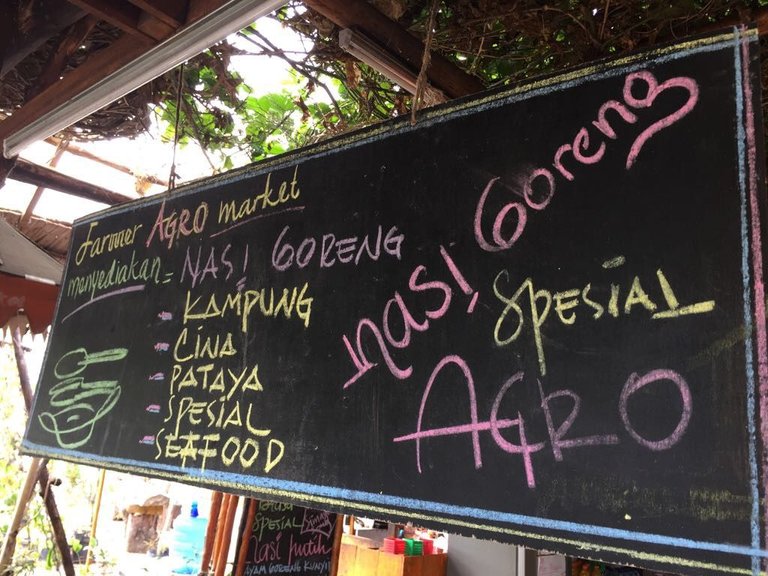 Farmer AGRO market
menyediakan = NASI GORENG
- KAMPUNG
- CINA
- PATAYA
- SPESIAL
- SEAFOOD
NASI Goreng
SPESIAL
AGRO
SPESIAL
nasi putih
AYAM GORENG KUNYIT